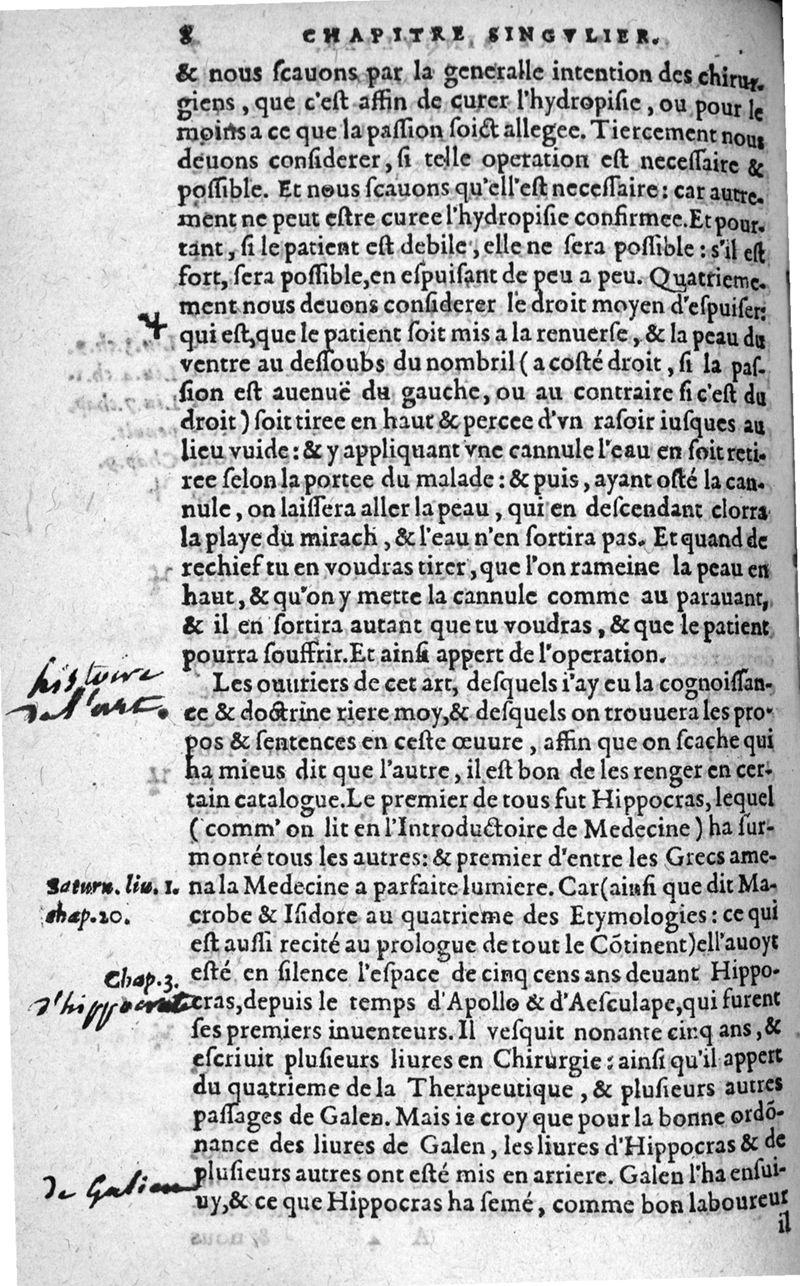 8 CHAPITRE SINGVLIER.
& nous ſcauons par la generalle intention des chirur-
giens, que c'eſt affin de curer l'hydropiſie, ou pour le
moins a ce que la paſſion ſoict allegee. Tiercement nous
deuons conſiderer, ſi telle operation eſt neceſſaire &
poſſible. Et nous ſcauons qu'ell'eſt neceſſaire: car autre-
ment ne peut eſtre curee l'hydropiſie confirmee. Et pour-
tant, ſi le patient eſt debile, elle ne ſera poſſible: s'il eſt
fort, ſera poſſible, en eſpuiſant de peu a peu. Quatrieme-
ment nous deuons conſiderer le droit moyen d'eſpuiſer:
4
qui eſt, que le patient ſoit mis a la renuerſe, & la peau du
ventre au deſſoubs du nombril (a coſté droit, ſi la paſ-
ſion eſt auenuë du gauche, ou au contraire ſi c'eſt du
droit) ſoit tiree en haut & percee d'vn raſoir iuſques au
lieu vuide: & y appliquant vne cannule l'eau en ſoit reti-
ree ſelon la portee du malade: & puis, ayant oſté la can-
nule, on laiſſera aller la peau, qui en deſcendant clorra
la playe du mirach, & l'eau n'en ſortira pas. Et quand de
rechief tu en voudras tirer, que l'on rameine la peau en
haut, & qu'on y mette la cannule comme au parauant,
& il en ſortira autant que tu voudras, & que le patient
pourra ſouffrir. Et ainſi appert de l'operation.
histoire
de l'art.
Les ouuriers de cet art, deſquels i'ay eu la cognoiſſan-
ce & doctrine riere moy, & deſquels on trouuera les pro-
pos & ſentences en ceſte œuure, affin que on ſcache qui
ha mieus dit que l'autre, il eſt bon de les renger en cer-
tain catalogue. Le premier de tous fut Hippocras, lequel
(comm' on lit en l'Introductoire de Medecine) ha ſur-
monté tous les autres: & premier d'entre les Grecs ame-
Saturn. liu. 1.
chap. 20.
na la Medecine a parfaite lumiere. Car (ainſi que dit Ma-
crobe & Iſidore au quatrieme des Etymologies: ce qui
eſt auſſi recité au prologue de tout le Cõtinent) ell'auoyt
Chap. 3.
d'hippocrate
eſté en ſilence l'eſpace de cinq cens ans deuant Hippo-
cras, depuis le temps d'Apollo & d'Aeſculape, qui furent
ſes premiers inuenteurs. Il veſquit nonante cinq ans, &
eſcriuit pluſieurs liures en Chirurgie: ainſi qu'il appert
du quatrieme de la Therapeutique, & pluſieurs autres
paſſages de Galen. Mais ie croy que pour la bonne ordõ-
nance des liures de Galen, les liures d'Hippocras & de
de Galien
pluſieurs autres ont eſté mis en arriere. Galen l'ha enſui-
uy, & ce que Hippocras ha ſemé, comme bon laboureur
il